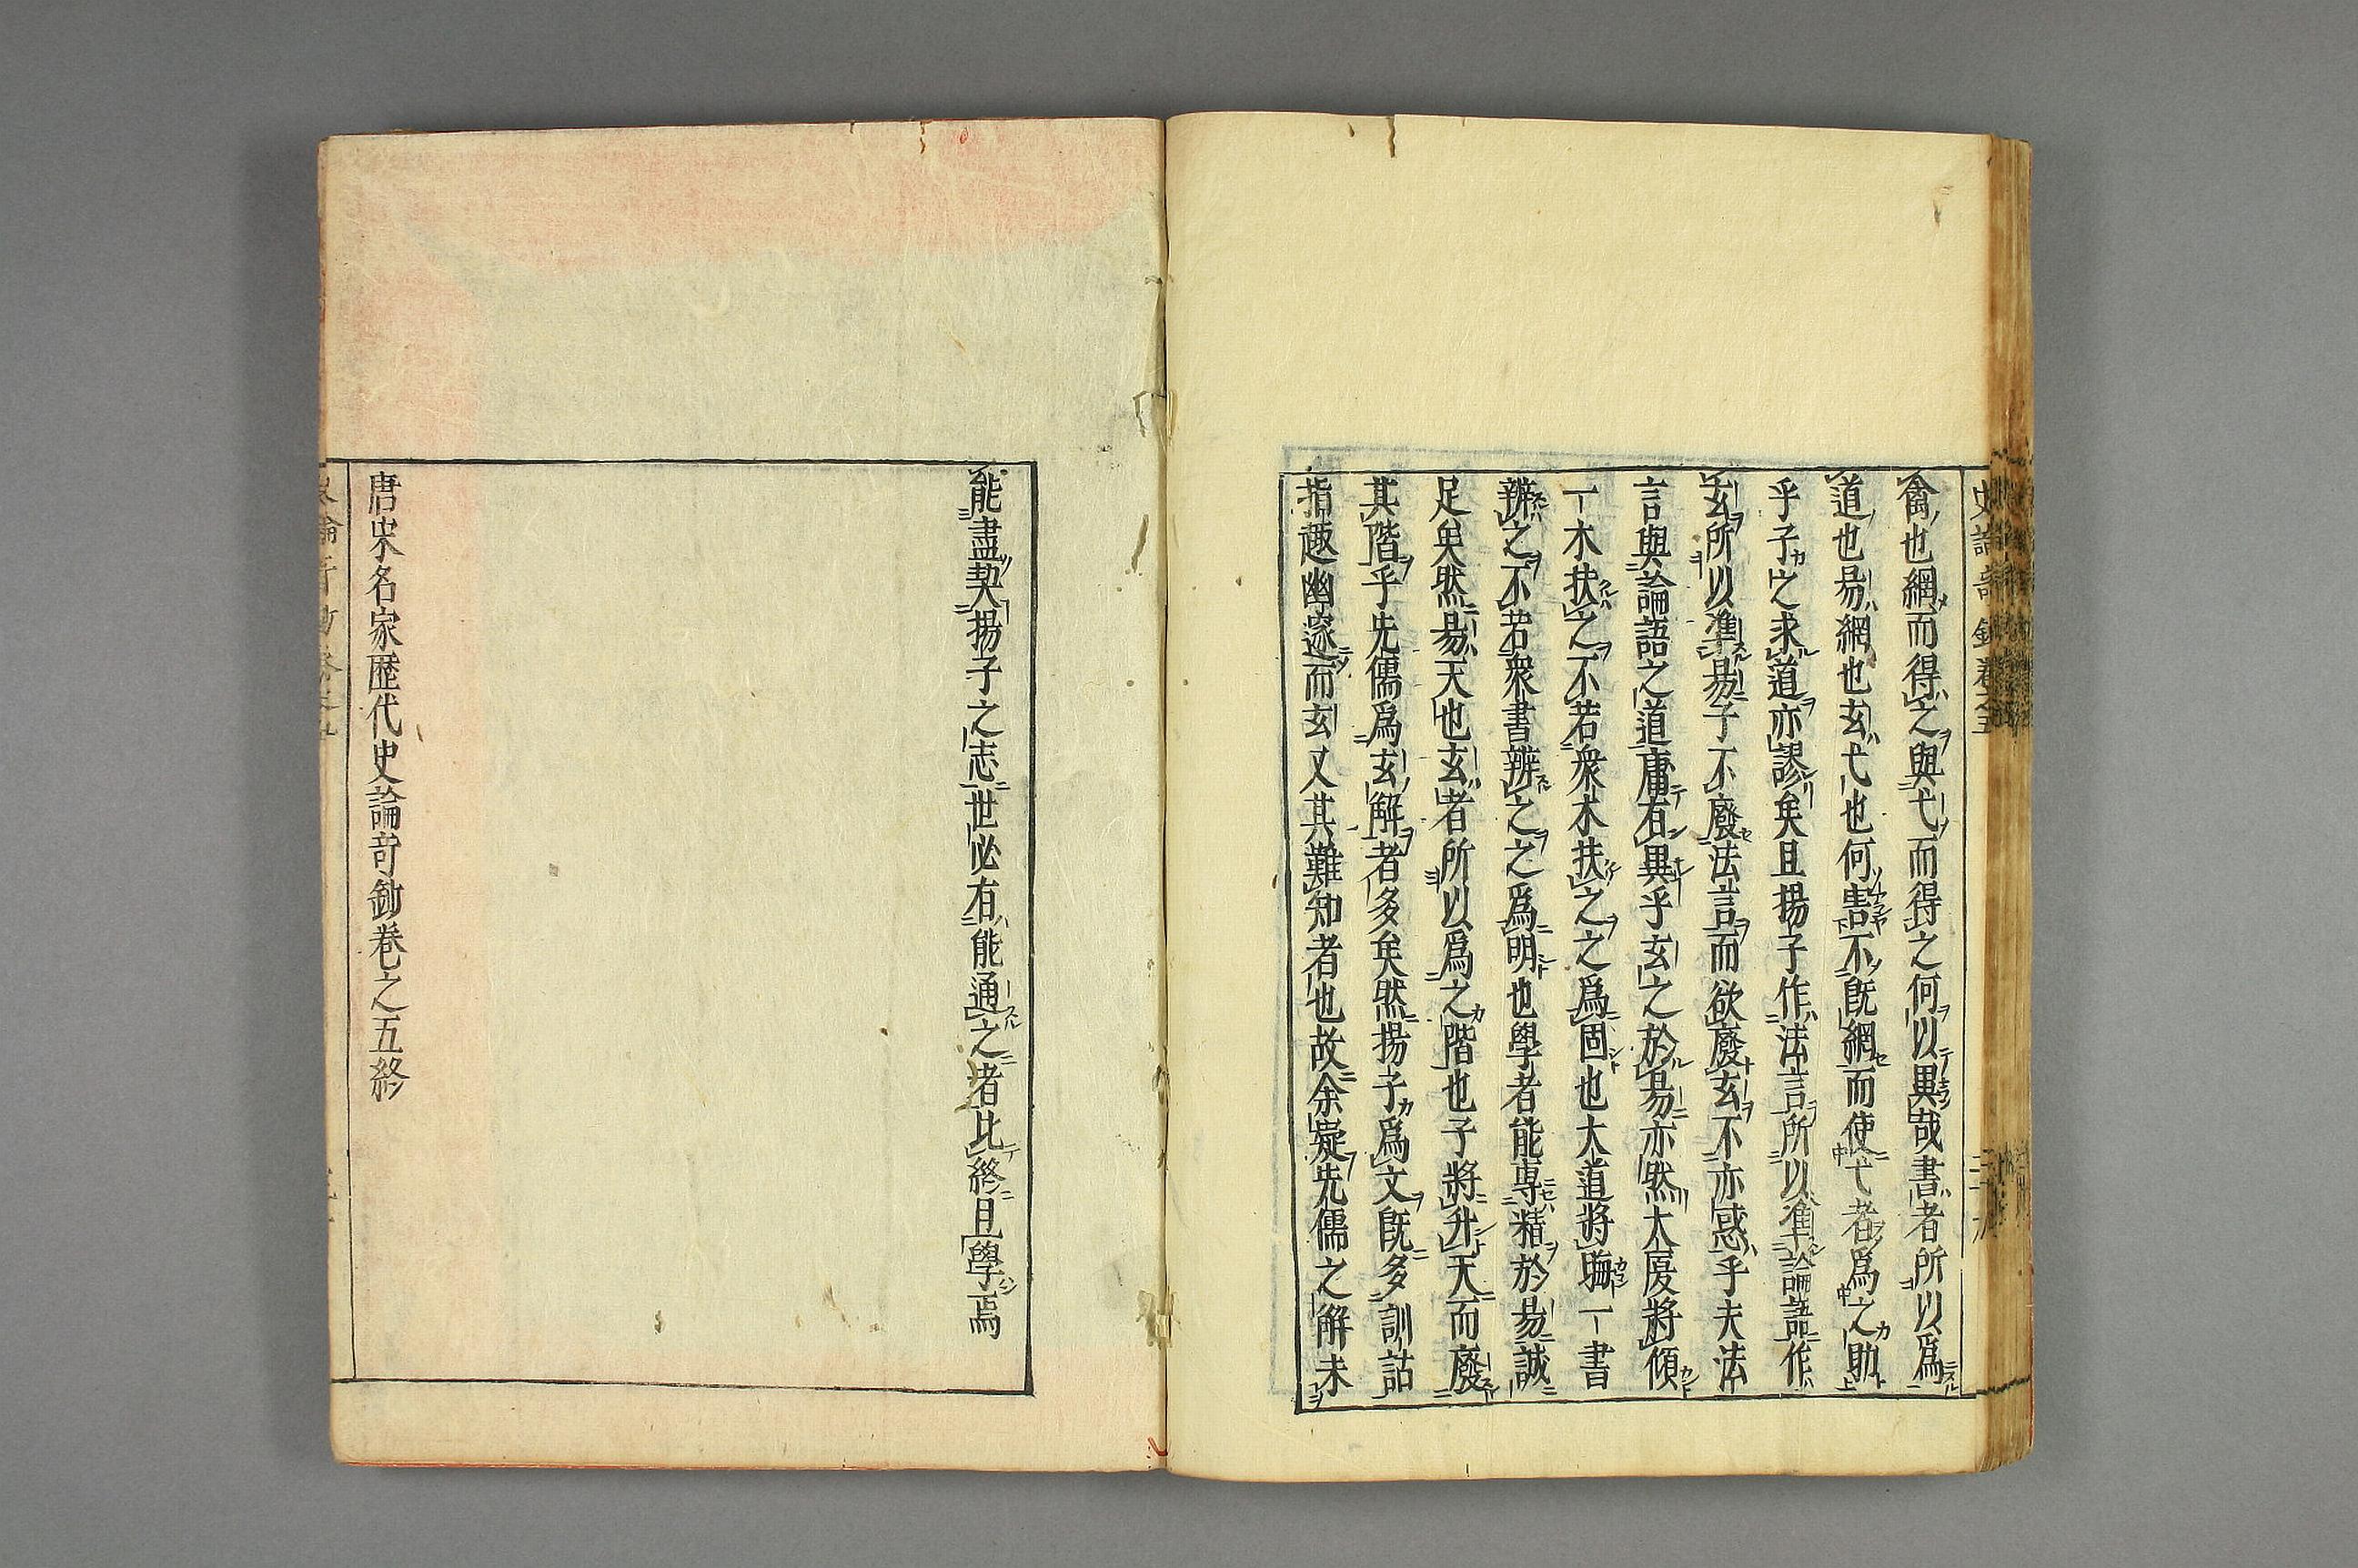 禽也網而得之與弋而得之何以異哉書者所以爲
道也易網也玄弋也何害不既網而使弋者爲之助
乎子之求道亦謬矣且揚子作法言所以準論語作
玄所以準易子不廢法言而欲廢玄不亦惑乎夫法
言與論語之道庸有異乎玄之於易亦然大厦將傾
一木扶之不若衆木扶之之爲固也大道將晦一書
辨之不若衆書辨之之爲明也學者能專精於易誠
足矣然易天也玄者所以爲之階也子將升天而廢
其階乎先儒爲玄解者多矣然揚子爲文既多訓詁
指趣幽邃而玄又其難知者也故余疑先儒之解未
能盡契揚子之志世必有能通之者比終且學焉
唐宋名家歴代史論奇鈔巻之五終